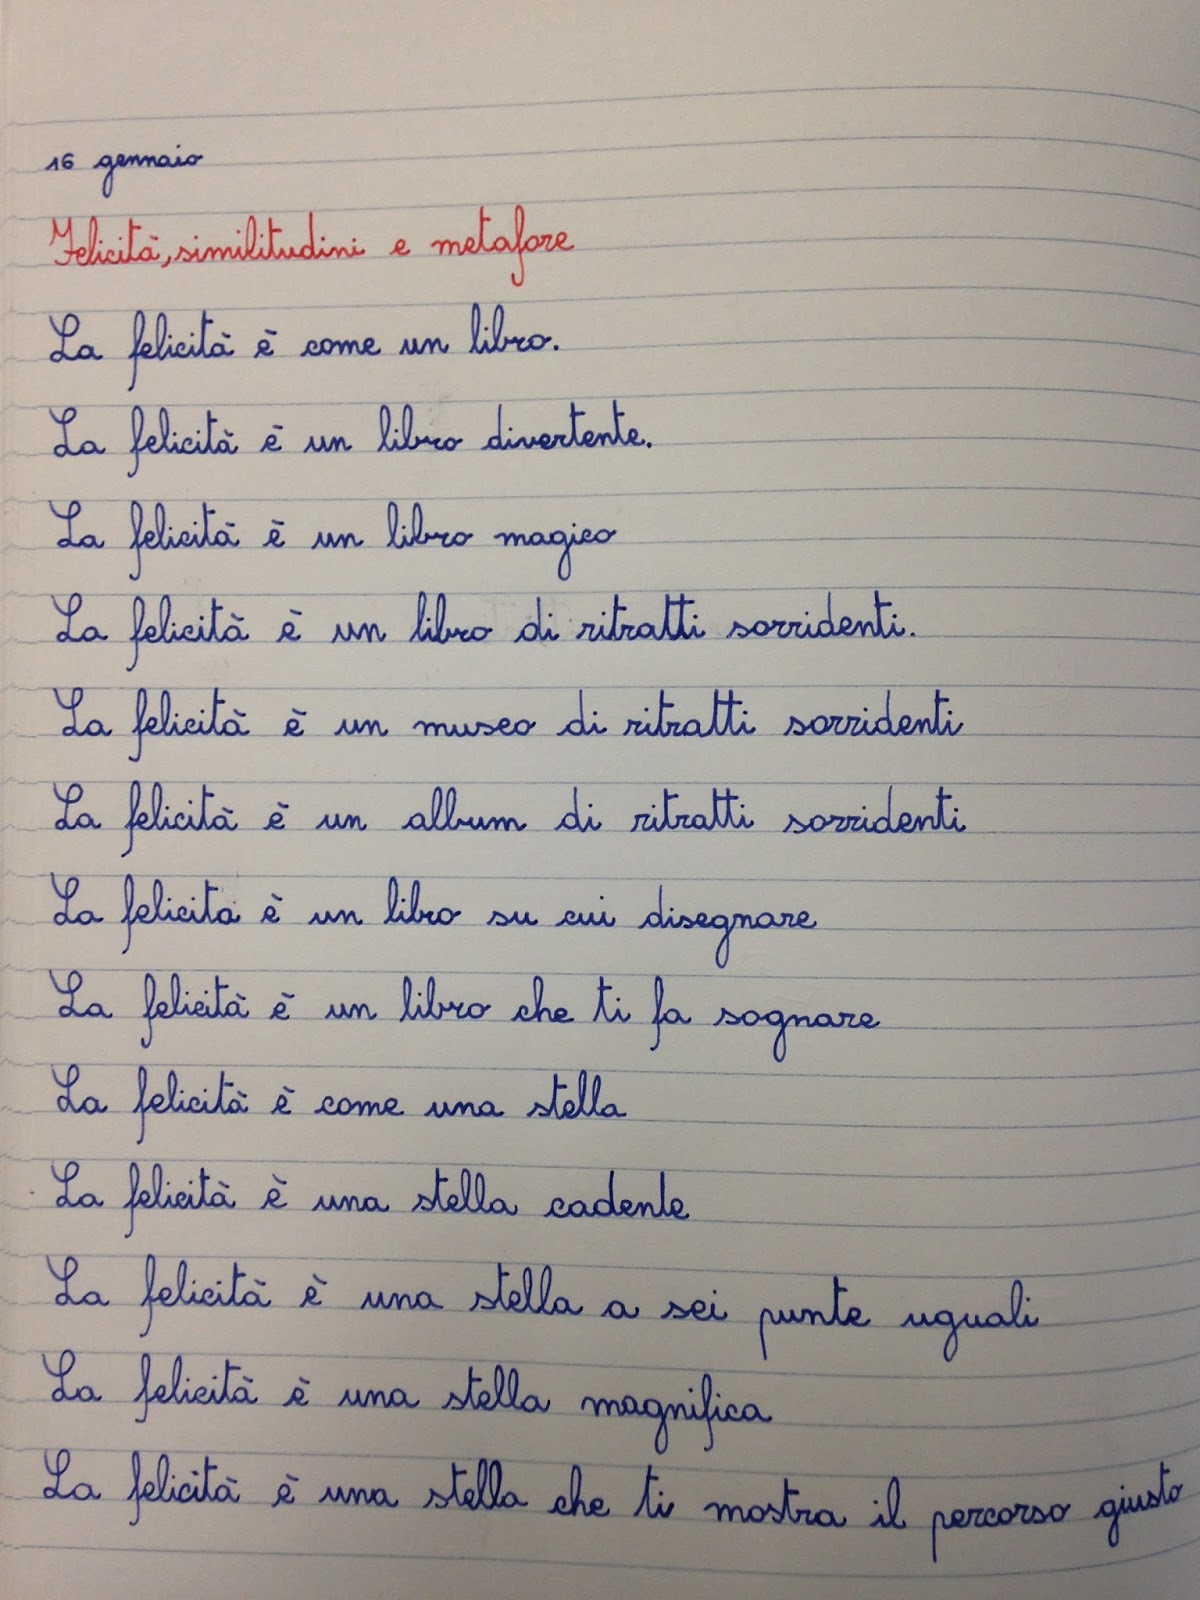 16 gennaio
Felicità, similitudini e metafore
La felicità è come un libro.
La felicità è un libro divertente.
La felicità è un libro magico
La felicità è un libro di ritratti sorridenti.
La felicità è un museo di ritratti sorridenti
La felicità è un album di ritratti sorridenti
La felicità è un libro su cui disegnare
La felicità è un libro che ti fa sognare
La felicità è come una stella
La felicità è una stella cadente
La felicità è una stella a sei punte uguali
La felicità è una stella magnifica
La felicità è una stella che ti mostra il percorso giusto